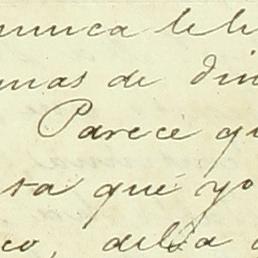 nunca le h
mas de din
Parece qu
sta que yo
co, debía